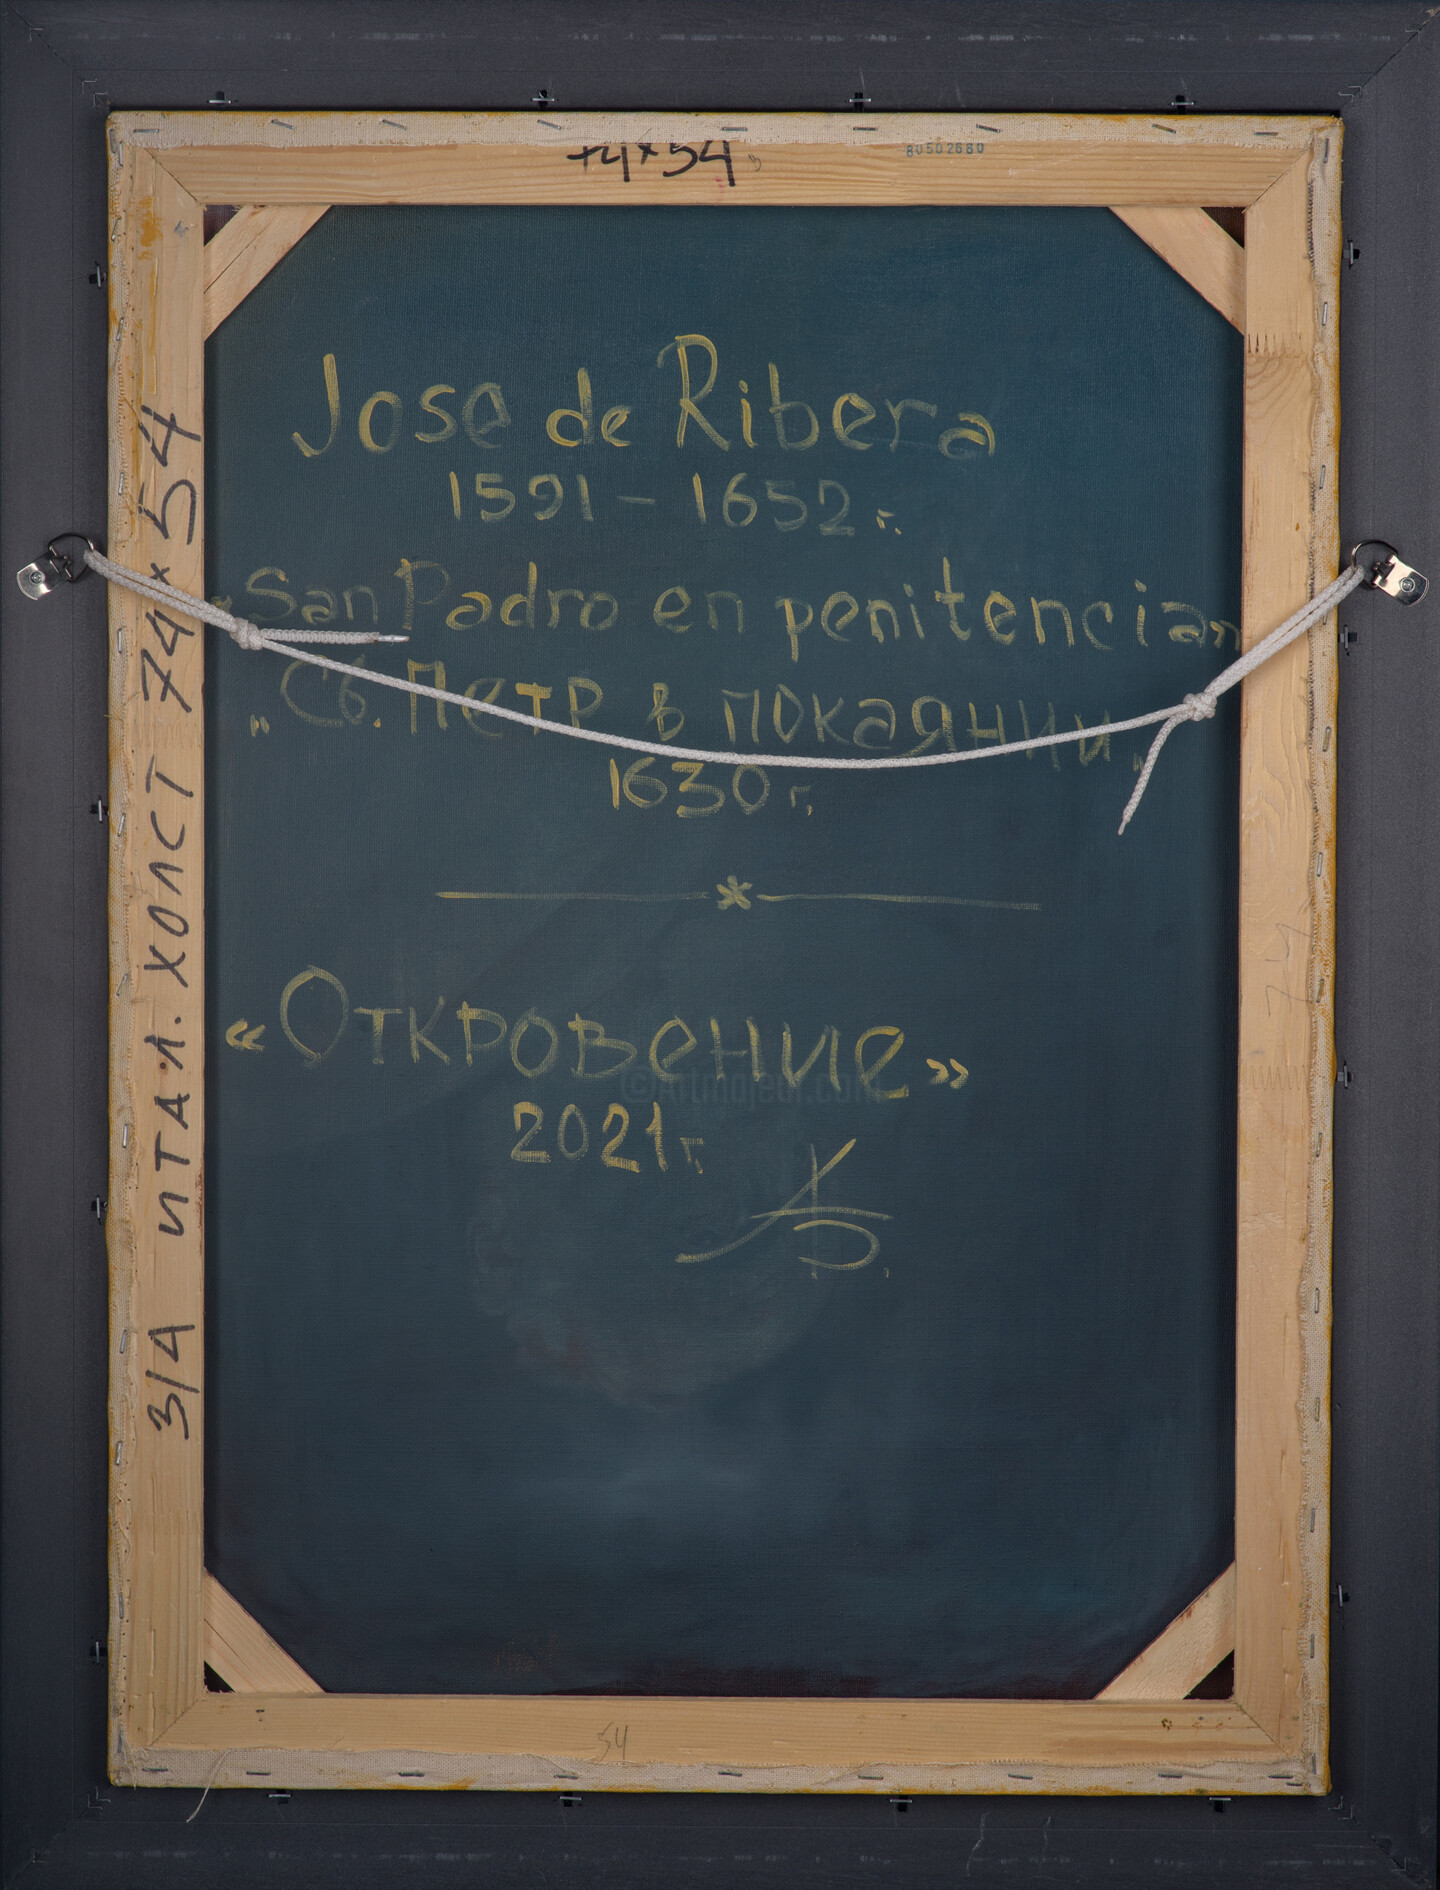 74×54
80502680
Jose de Ribera
1591 – 1652 г.
"San Padro en penitencia"
„Св. Петр в покаянии„
1630 г.
«Откровение»
©Artmajeur.com
2021 г.
З/А ИТАЛ. ХОЛСТ 74×54
74
54